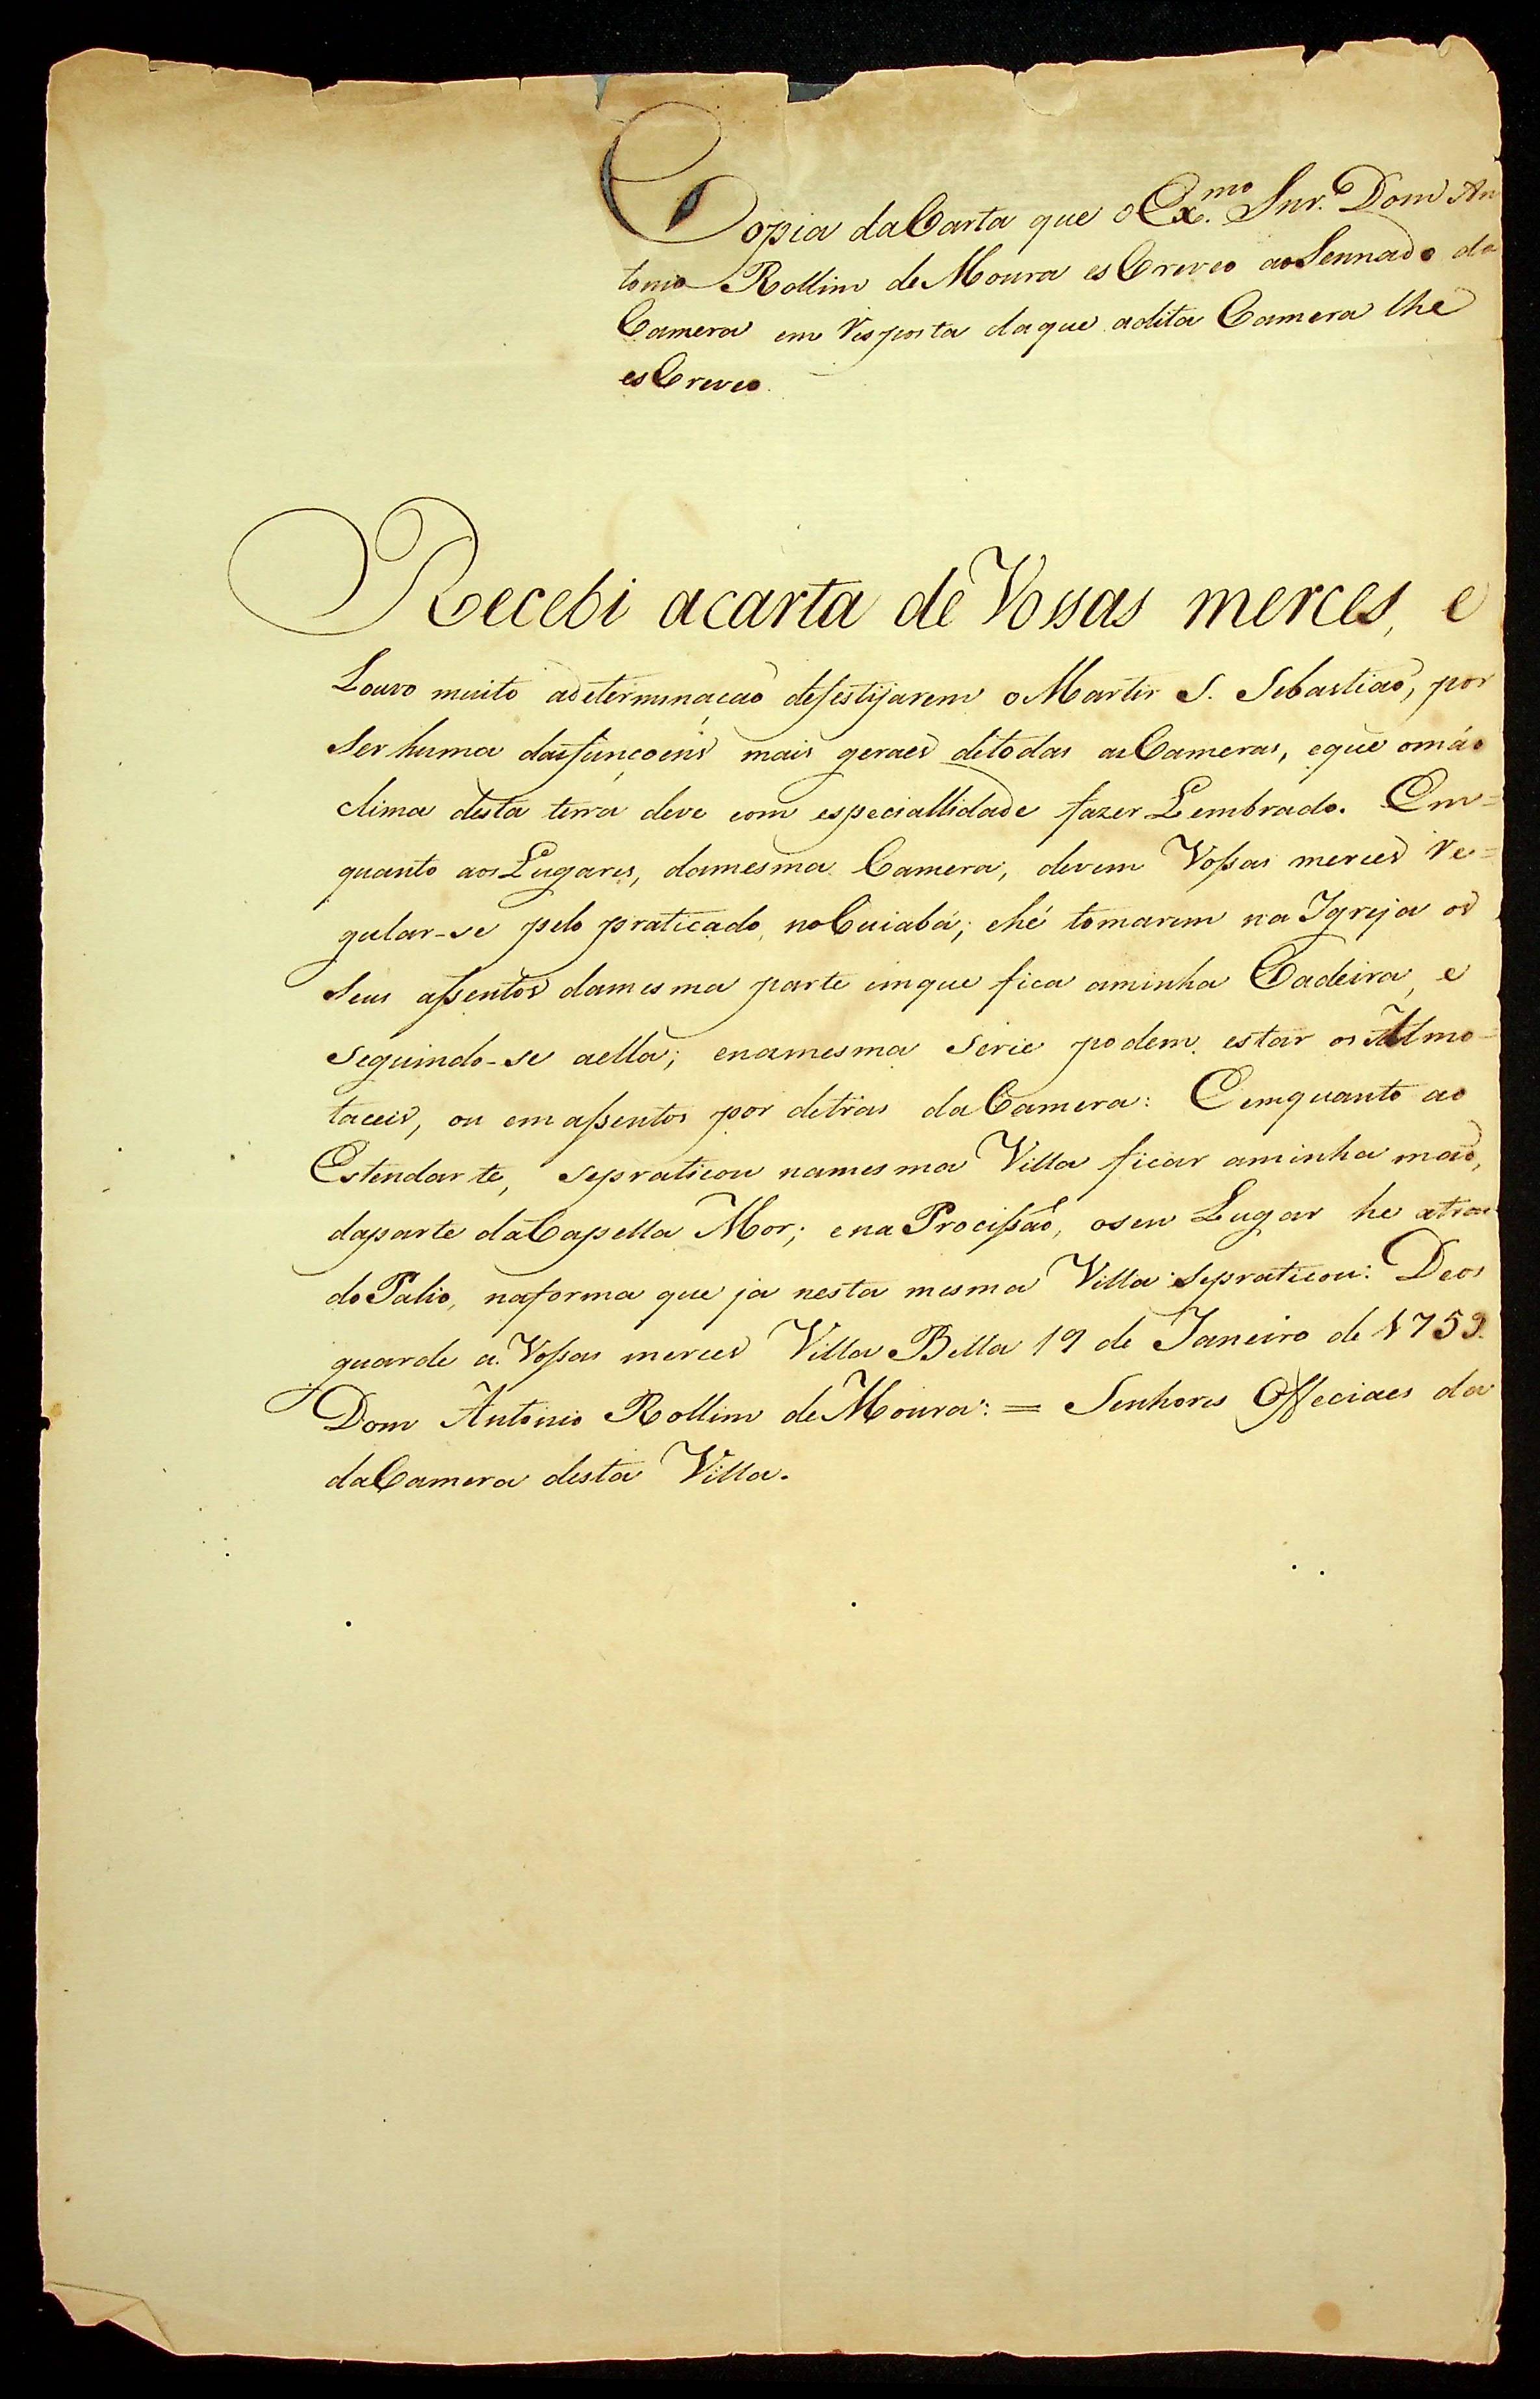 Copia daCarta que oEx.mo Snr. Dom An
tonio Rollim deMoura esCreveo aoSennado da
Camera em resposta daque adita Camera lhe
esCreveo.
Recebi acarta de Vossas merces, e
Louvo muito adeterminaçaõ defestijarem oMartir S. Sebastiaõ, por
ser huma dasfunçoens mais geraes detodas asCameras, eque omáo
clima desta terra deve com especiallidade fazer Lembrado. Em=
quanto aos Lugares, damesma Camera, devem Voſsas merces re=
gular-se pelo praticado, noCuiabá; ehé tomarem na Igreja os
seus aſsentos damesma parte emque fica aminha Cadeira, e
seguindo-se aella; enamesma serie podem estar os Almo-
taceis, ou em aſsentos por detras daCamera: Eemquanto ao
Estendarte, sepraticou namesma Villa ficar aminha maõ,
daparte daCapella Mor; ena Prociſsaõ, oseu Lugar he atras
doPalio, naforma que ja nesta mesma Villa sepraticou: Deos
guarde a Voſsas merces Villa Bella 19 de Janeiro de 1759.
Dom Antonio Rollim deMoura: = Senhores Offeciaes da
daCamera desta Villa.